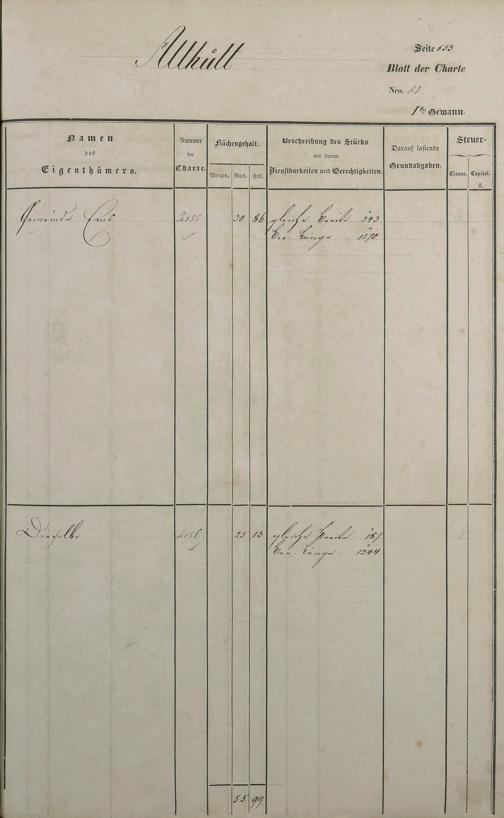 Althütt
Seite 553.
Blatt der Charte
Nro. 51.
1te Gewann.
Namen
des
Eigenthümers.
Nummer
der
Charte.
Flächengehalt.
Morgen. Ruth. Fuß.
Beschreibung des Stücks
mit seinen
Dienstbarkeiten und Gerechtigkeiten.
Darauf lastende
Grundabgaben.
Steuer-
Classe. Capital.
fl.
Gemeinde Ems 2155 30 86 gleiche Breite 243
Ber. Länge 1270
Derselbe 2156 25 13 gleiche Breite 187
Ber. Länge 1344
55 99